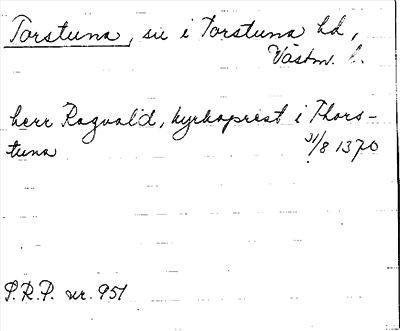 Torstuna, sn i Torstuna hd,
Västm. l.
herr Ragvald, kyrkoprest i Thors-
tuna 31/8 1370
S.R.P. nr. 951